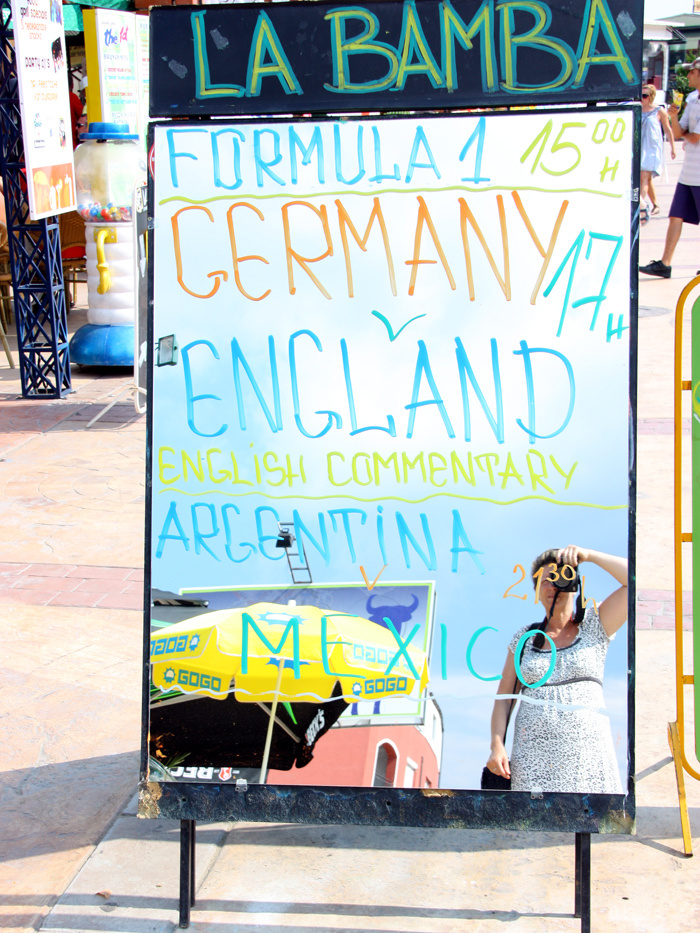 LA BAMBA
FORMULA 1 15 00 H
GERMANY
17 H
V
ENGLAND
ENGLISH COMMENTARY
ARGENTINA
V 21 30 h
MEXICO
GOGO
GOGO